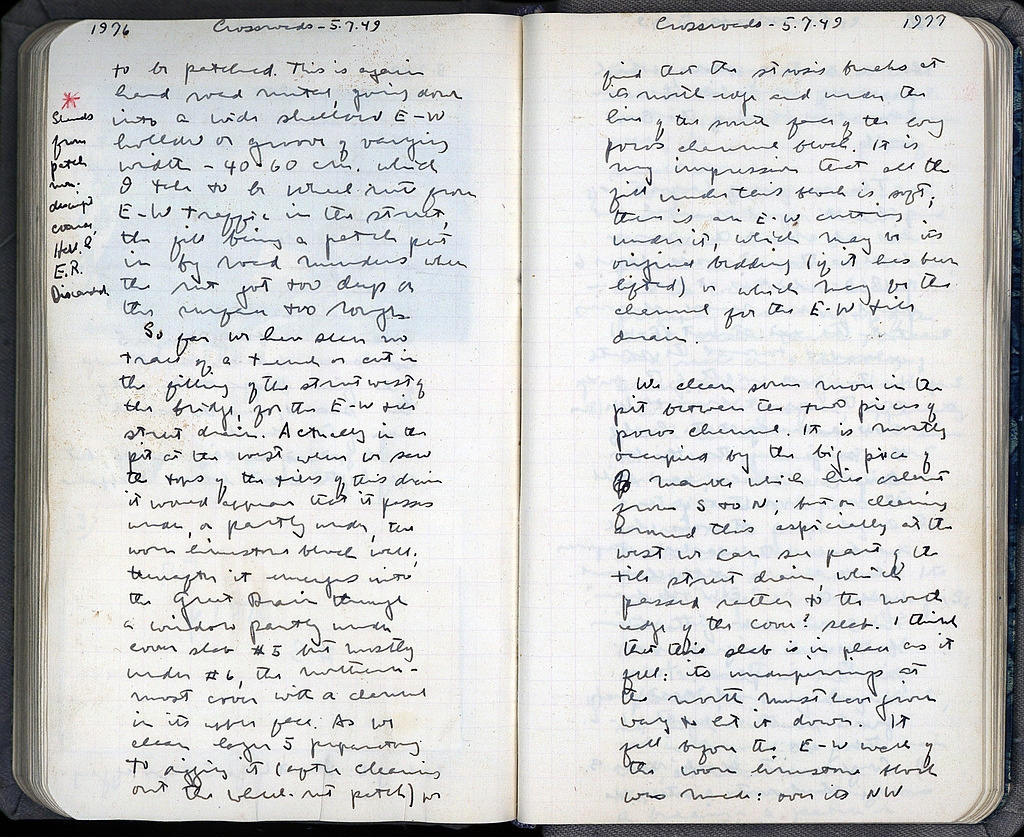 1976 Crossroads - 5.7.49
to be patched. This is again
hard road metal, going down
into a wide shallow E-W
hollow or groove of varying
width - 40-60 cm. which
I take to be wheel rut from
E-W traffic in the street,
the fill being a patch put
in by road menders when
the rut got too deep or
the surface too rough.
So far we have seen no
trace of a trench or cut in
the filling of the street west of
the bridge, for the E-W tile
street drain. Actually in the
pit at the west where we saw
the tops of the tiles of this drain
it would appear that it passes
under, or partly under, the
worn limestone block wall;
it emerges into
the Great Drain through
a window partly under
cover slab #5 but mostly
under #6, the northern-
most cover with a channel
in its upper face. As we
clean layer 5 preparatory
to digging it (after cleaning
out the wheel-rut patch) we
*
Sherds
from
patch
non-
descript
coarse,
Hell. &
E.R.
Discarded
Crossroads - 5.7.49 1977
find that the strosis breaks at
its north edge and under the
line of the south face of the long
poros channel block. It is
my impression that all the
fill under this block is soft;
there is an E-W cutting
under it, which may be its
original bedding (if it has been
lifted) or which may be the
channel for the E-W tile
drain.
We clean some more in the
pit between the two pieces of
poros channel. It is mostly
occupied by the big piece of
marble which lies aslant
from S to N; but on cleaning
around this especially at the
west we can see part of the
tile street drain, which
passed rather to the north
edge of the cover? slab. I think
that this slab is in place as it
fell: its underpinnings at
the north must have given
way to let it down. It
fell before the E-W wall of
the worn limestone block
was made: over its NW